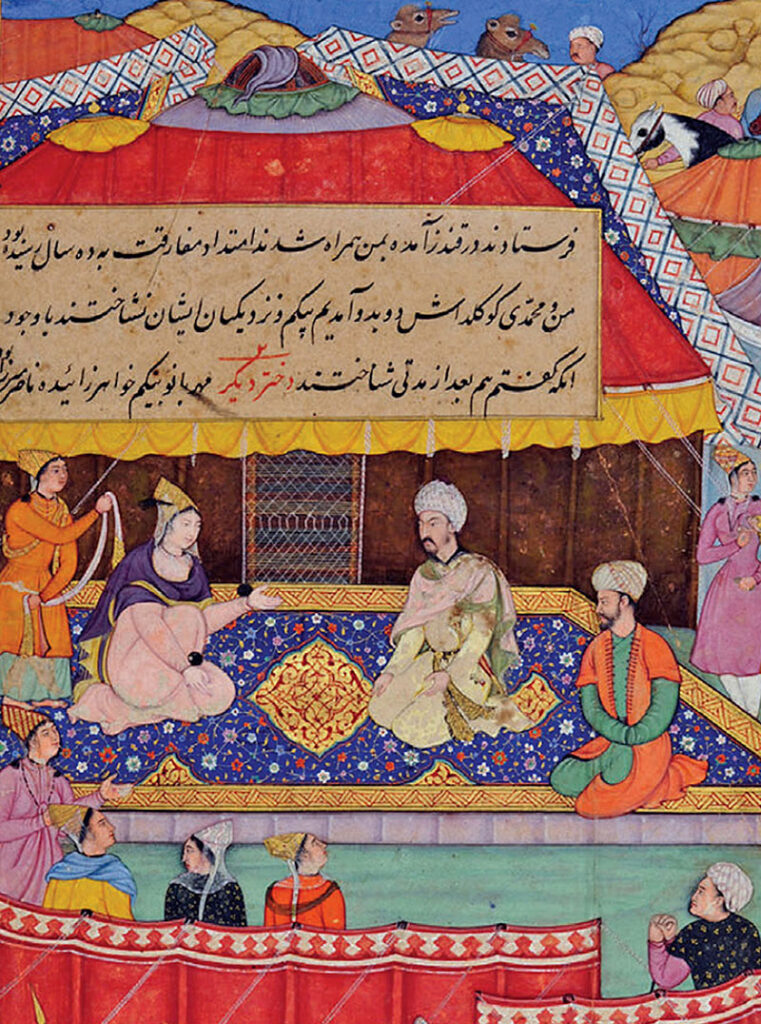 فرستادند در قندز آمده بمن همراه شدند امتداد مفارقت به ده سال رسیده بود
من و محمدی کوکلداش دو بدو آمدیم بیکم و نزدیکان ایشان نشناختند با وجود
انکه گفتم هم بعد از مدتی شناختند دختر دیگر مهربانو بیکم خواهر زائیده ناصر میرزا بود